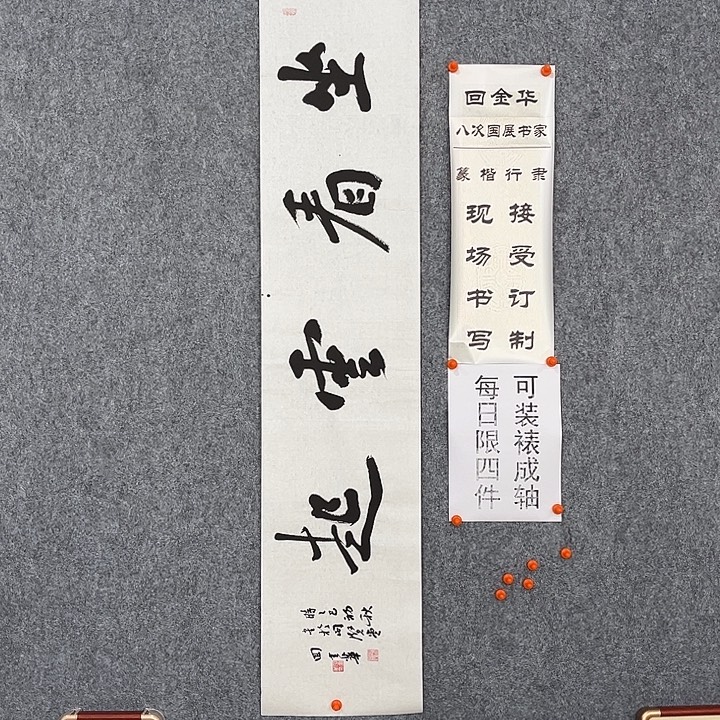 坐看雲起
回金華
回金华
八次国展书家
篆楷行隶
接受订制
现场书写
可装裱成轴
每日限四件